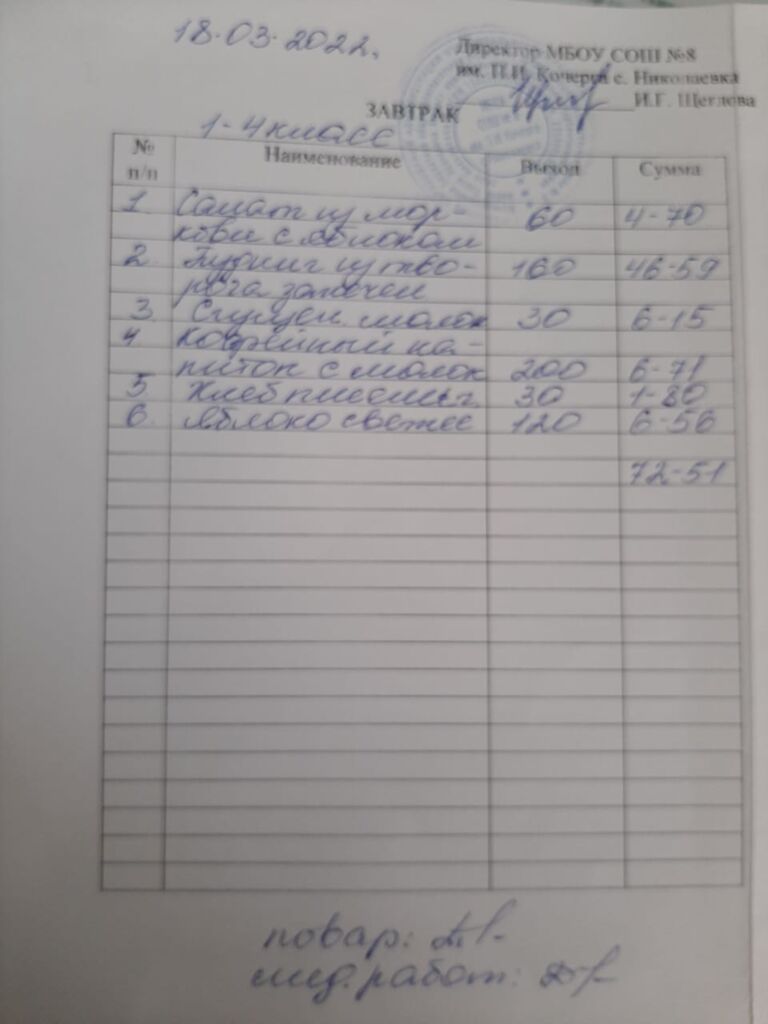 18.03.2022г.
Директор МБОУ СОШ №8
им. П.И. Кочерги с. Николаевка
И.Г. Щеглова
ЗАВТРАК
1-4 класс
№ п/п Наименование Выход Сумма
1 Салат из мор-
кови с яблоком 60 4-70
2 Пудинг из тво- 160 46-59
рога запечен
3 Сгущен. молок 30 6-15
4 Кофейный на-
питок с молок 200 6-71
5 Хлеб пшенич. 30 1-80
6 Яблоко свежее 120 6-56
72-51
повар:
мед. работ: